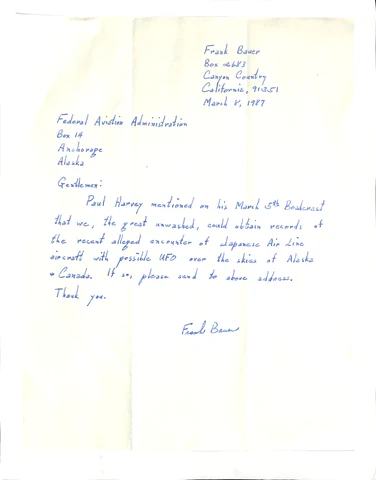 Frank Bauer
Box 2683
Canyon Country
California, 91351
March 8, 1987
Federal Aviation Administration
Box 14
Anchorage
Alaska
Gentlemen:
Paul Harvey mentioned on his March 5th Broadcast
that we, the great unwashed, could obtain records of
the recent alleged encounter of Japanese Air Line
aircraft with possible UFO over the skies of Alaska
+ Canada. If so, please send to above address.
Thank you.
Frank Bauer